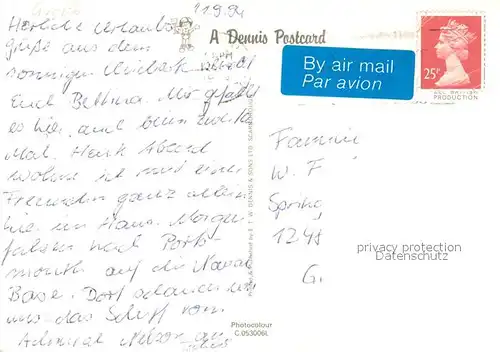 1.9.94
A Dennis Postcard
By air mail
Par avion
25P
ALL BRITISH
PRODUCTION
Herzliche Urlaubs-
grüße aus dem
sonnigen
Euch Bettina. Mir gefällt
es hier auch beim zweiten
Mal. Heute Abend
wohne ich mit einer
Freundin ganz allein
hier im Haus. Morgen
fahren nach Ports-
mouth auf die Naval
Base. Dort schauen wir
uns das Schiff vom
Admiral Nelson an
Photocolour
C.053006L
Printed & Published by E. T. W. DENNIS & SONS LTD. SCARBOROUGH
Familie
W. F
Spring
G.
privacy protection
Datenschutz